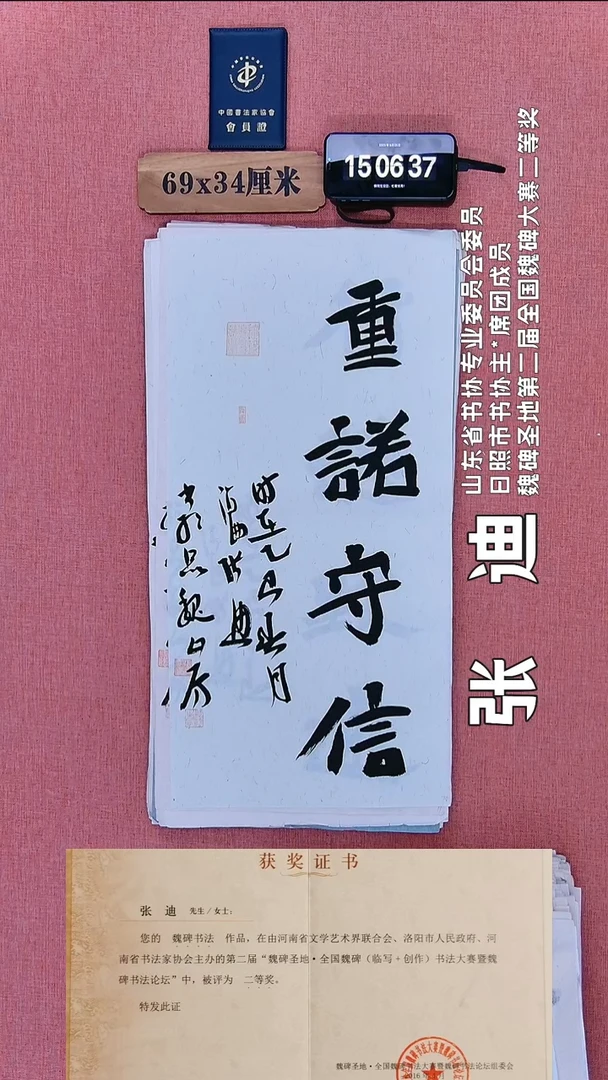 中國書法家協會
會員證
69x34厘米
15 06 37
重諾守信
山东省书协专业委员会委员
日照市书协主*席团成员
魏碑圣地第二届全国魏碑大赛二等奖
张 迪
获奖证书
张 迪 先生/女士:
您的 魏碑书法 作品,在由河南省文学艺术界联合会、洛阳市人民政府、河
南省书法家协会主办的第二届“魏碑圣地·全国魏碑(临写+创作)书法大赛暨魏
碑书法论坛”中,被评为 二等奖。
特发此证
魏碑圣地·全国魏碑书法大赛暨魏碑书法论坛组委会